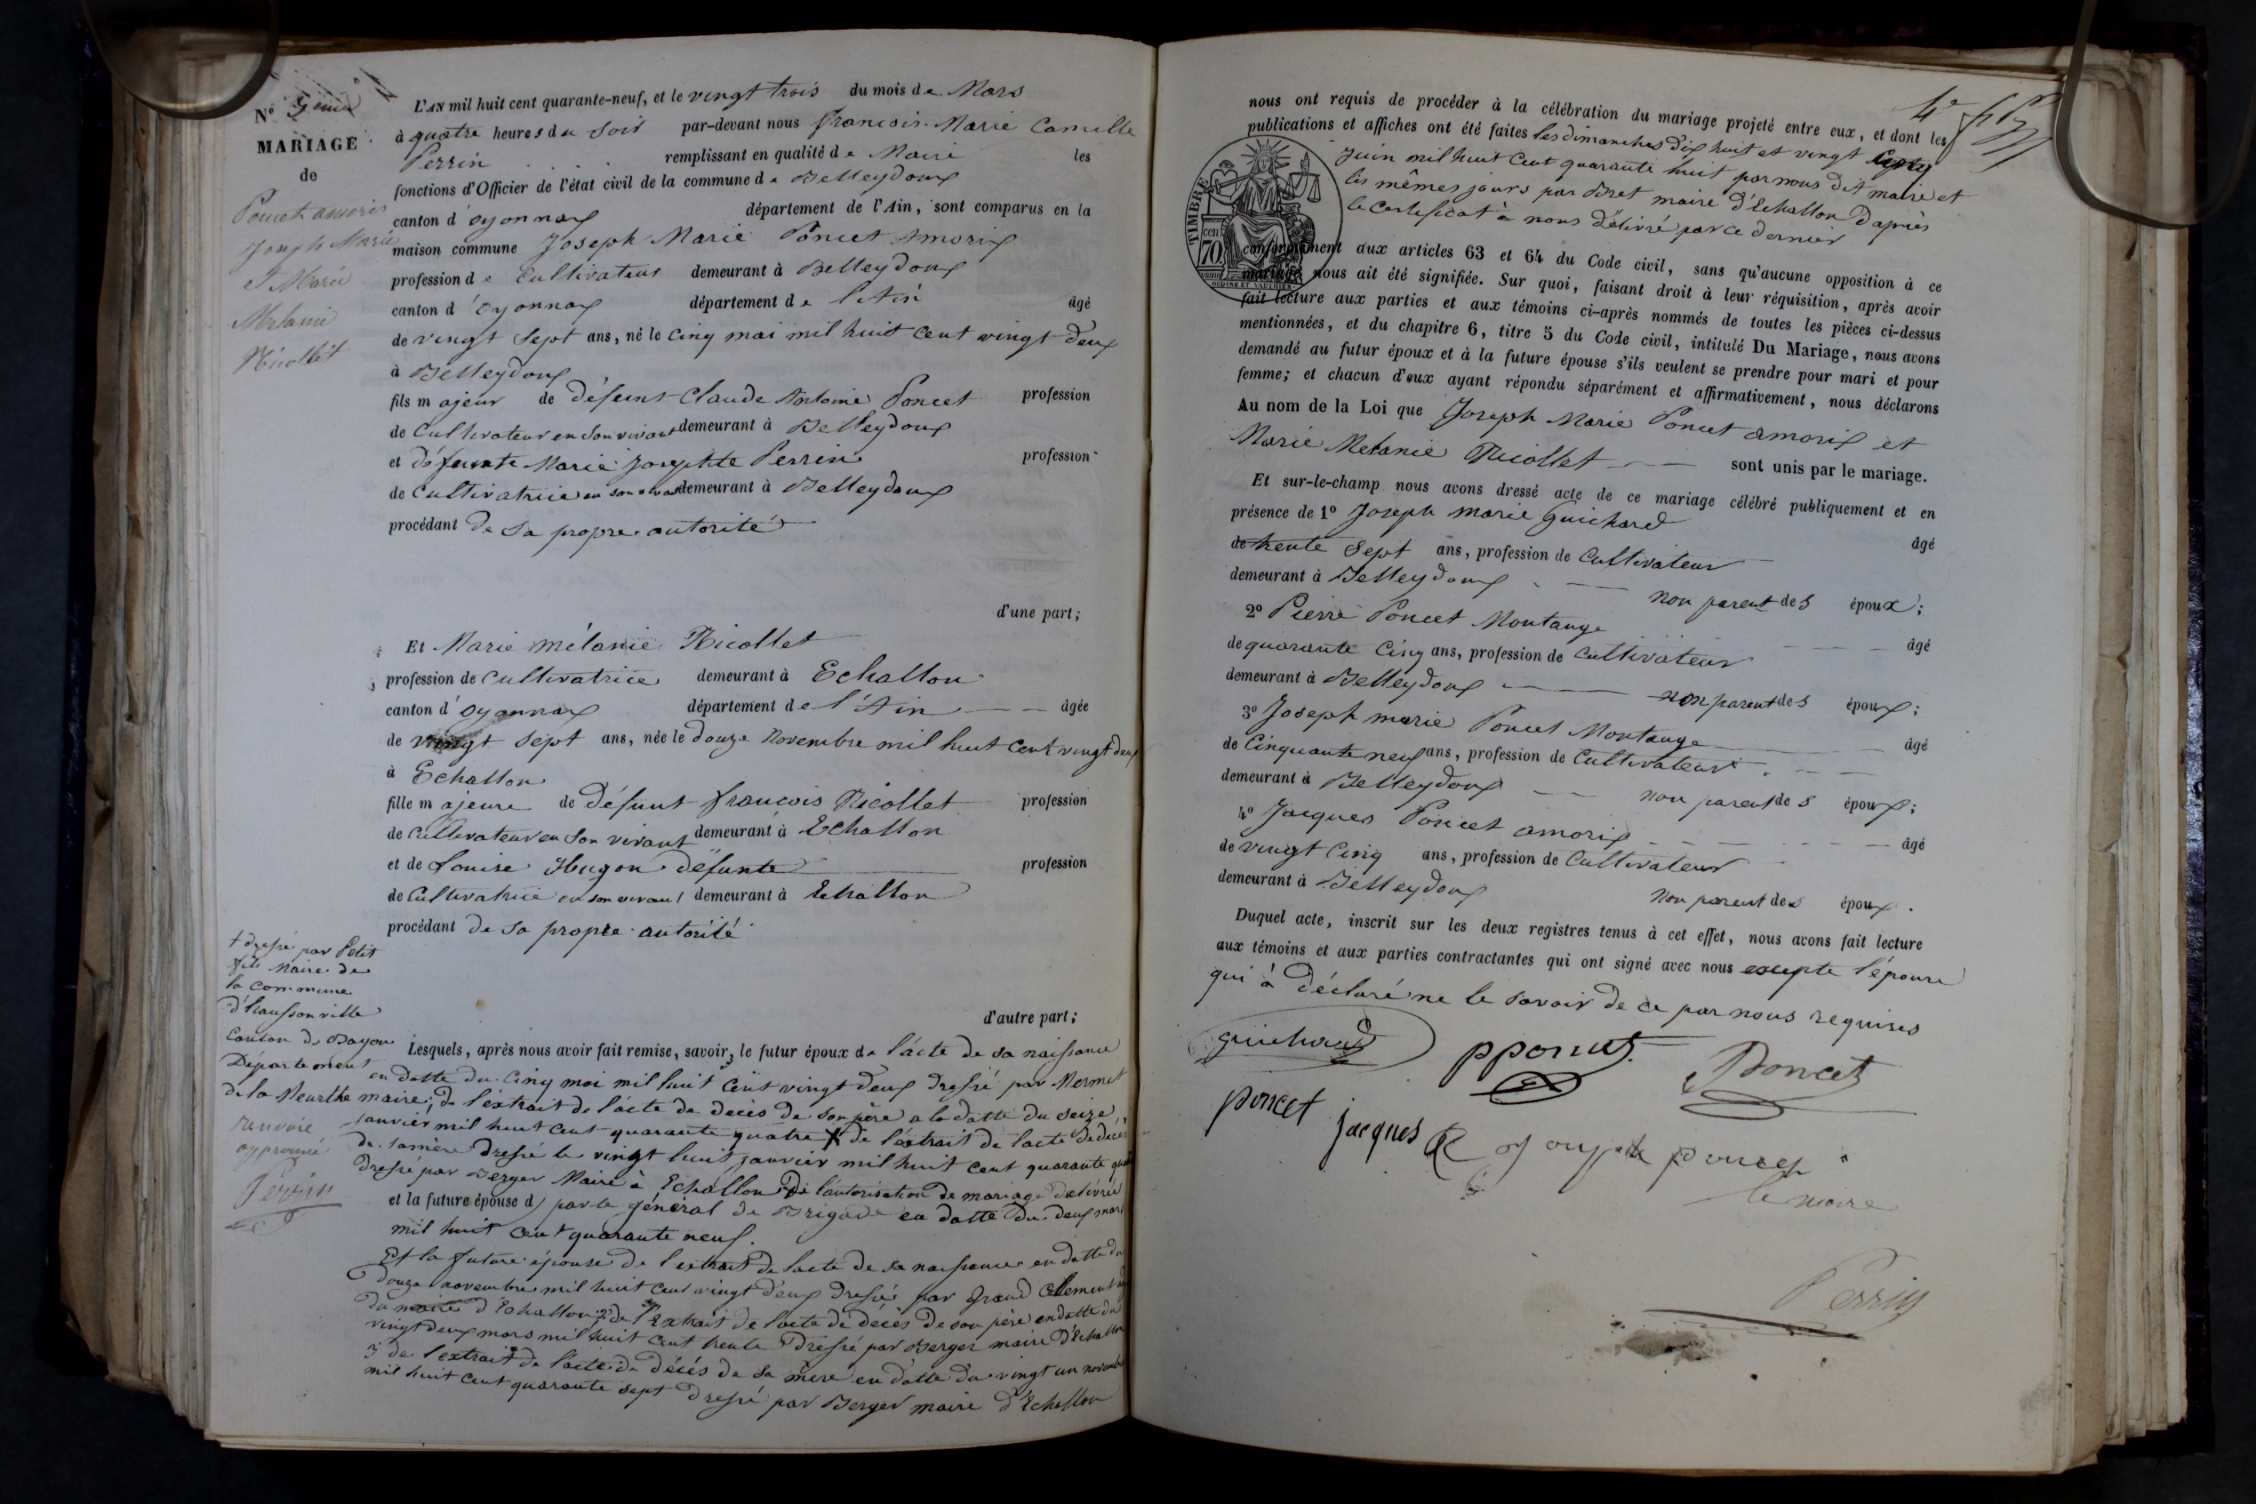 N° 5eme
MARIAGE
de
Poncet amorix
Joseph Marie
et Marie
Melanie
Nicollet
L'AN mil huit cent quarante-neuf, et le vingt trois du mois de Mars
à quatre heures du soir par-devant nous francois Marie Camille
Perrin remplissant en qualité de Maire les
fonctions d'Officier de l'état civil de la commune de Belleydoux
canton d'oyonnax département de l'Ain, sont comparus en la
maison commune Joseph Marie Poncet Amorix
profession de Cultivateur demeurant à Belleydoux
canton d'oyonnax département de l'Ain âgé
de vingt sept ans, né le cinq mai mil huit cent vingt deux
à Belleydoux
fils majeur de défunt Claude Antoine Poncet profession
de Cultivateur en son vivant demeurant à Belleydoux
et défunte Marie Josephte Perrin profession
de Cultivatrice en son vivant demeurant à Belleydoux
procédant de sa propre autorité
d'une part;
Et Marie mélanie Nicollet
profession de cultivatrice demeurant à Echallon
canton d'oyonnax département de l'Ain âgée
de vingt sept ans, née le douze Novembre mil huit cent vingt deux
à Echallon
fille majeure de défunt francois Nicollet profession
de cultivateur en son vivant demeurant à Echallon
et de Louise Hugon défunte profession
de Cultivatrice en son vivant demeurant à Echallon
procédant de sa propre autorité
d'autre part;
+ dressé par Petit
fils Maire de
la commune
d'haussonville
Canton de Bayon
Département
de la Meurthe
renvoie
approuvé
Perrin
Lesquels, après nous avoir fait remise, savoir, le futur époux de l'acte de sa naissance
en datte du cinq mai mil huit cent vingt deux dressé par Mermet
maire; de l'extrait de l'acte de decès de son père a la datte du seize
janvier mil huit cent quarante quatre + de l'extrait de lacte de decès
de samère dressé le vingt huit janvier mil huit cent quarante
dressé par Berger Maire à Echallon De l'autorisation de mariage délivrée
et la future épouse d par le général de Brigade en datte du deux mars
mil huit cent quarante neuf.
Et la future épouse de l'extrait de lacte de sa naissance en datte du
douze novembre mil huit cent vingt deux dressé par Grand Clement
du maire d'Echallon 2° de l'Extrait de lacte de décès de son père en datte du
vingt deux mars mil huit cent trente dressé par Berger maire d'Echallon
3° de l'extrait de lacte de décés de sa mère en datte du vingt un novembre
mil huit cent quarante sept dressé par Berger maire d'Echallon
4e
nous ont requis de procéder à la célébration du mariage projeté entre eux, et dont les
publications et affiches ont été faites les dimanches dix huit et vingt cinq
juin mil huit cent quarante huit par nous dit maire et
les mêmes jours par Bret maire d'Echallon d'après
le certificat à nous délivré par ce dernier
TIMBRE
cent.
70
OUDINE ET VAUTHIER
conformément aux articles 63 et 64 du Code civil, sans qu'aucune opposition à ce
mariage nous ait été signifiée. Sur quoi, faisant droit à leur réquisition, après avoir
fait lecture aux parties et aux témoins ci-après nommés de toutes les pièces ci-dessus
mentionnées, et du chapitre 6, titre 5 du Code civil, intitulé Du Mariage, nous avons
demandé au futur époux et à la future épouse s'ils veulent se prendre pour mari et pour
femme; et chacun d'eux ayant répondu séparément et affirmativement, nous déclarons
Au nom de la Loi que Joseph Marie Poncet amorix et
Marie Melanie Nicollet sont unis par le mariage.
Et sur-le-champ nous avons dressé acte de ce mariage célébré publiquement et en
présence de 1° Joseph marie Guichard âgé
de trente sept ans, profession de Cultivateur
demeurant à Belleydoux non parent des époux;
2° Pierre Poncet Montange âgé
de quarante cinq ans, profession de Cultivateur
demeurant à Belleydoux non parent des époux;
3° Joseph marie Poncet Montange âgé
de Cinquante neuf ans, profession de Cultivateur
demeurant à Belleydoux non parent des époux;
4° Jacques Poncet amorix âgé
de vingt cinq ans, profession de Cultivateur
demeurant à Belleydoux non parent des époux.
Duquel acte, inscrit sur les deux registres tenus à cet effet, nous avons fait lecture
aux témoins et aux parties contractantes qui ont signé avec nous excepte l'épouse
qui à déclaré ne le savoir de ce par nous requises
guichard pponcet Poncet
poncet jacques
joseph poncet
le maire
Perrin